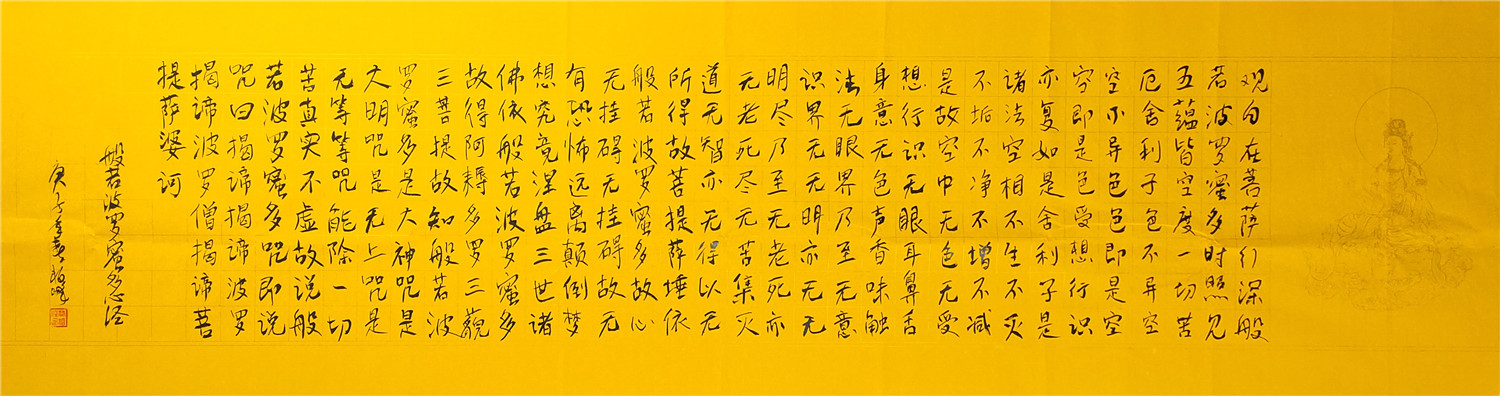 观自在菩萨行深般
若波罗蜜多时照见
五蕴皆空度一切苦
厄舍利子色不异空
空不异色色即是空
空即是色受想行识
亦复如是舍利子是
诸法空相不生不灭
不垢不净不增不减
是故空中无色无受
想行识无眼耳鼻舌
身意无色声香味触
法无眼界乃至无意
识界无无明亦无无
明尽乃至无老死亦
无老死尽无苦集灭
道无智亦无得以无
所得故菩提萨埵依
般若波罗蜜多故心
无挂碍无挂碍故无
有恐怖远离颠倒梦
想究竟涅盘三世诸
佛依般若波罗蜜多
故得阿耨多罗三藐
三菩提故知般若波
罗蜜多是大神咒是
大明咒是无上咒是
无等等咒能除一切
苦真实不虚故说般
若波罗蜜多咒即说
咒曰揭谛揭谛波罗
揭谛波罗僧揭谛菩
提萨婆诃
般若波罗蜜多心经
庚子